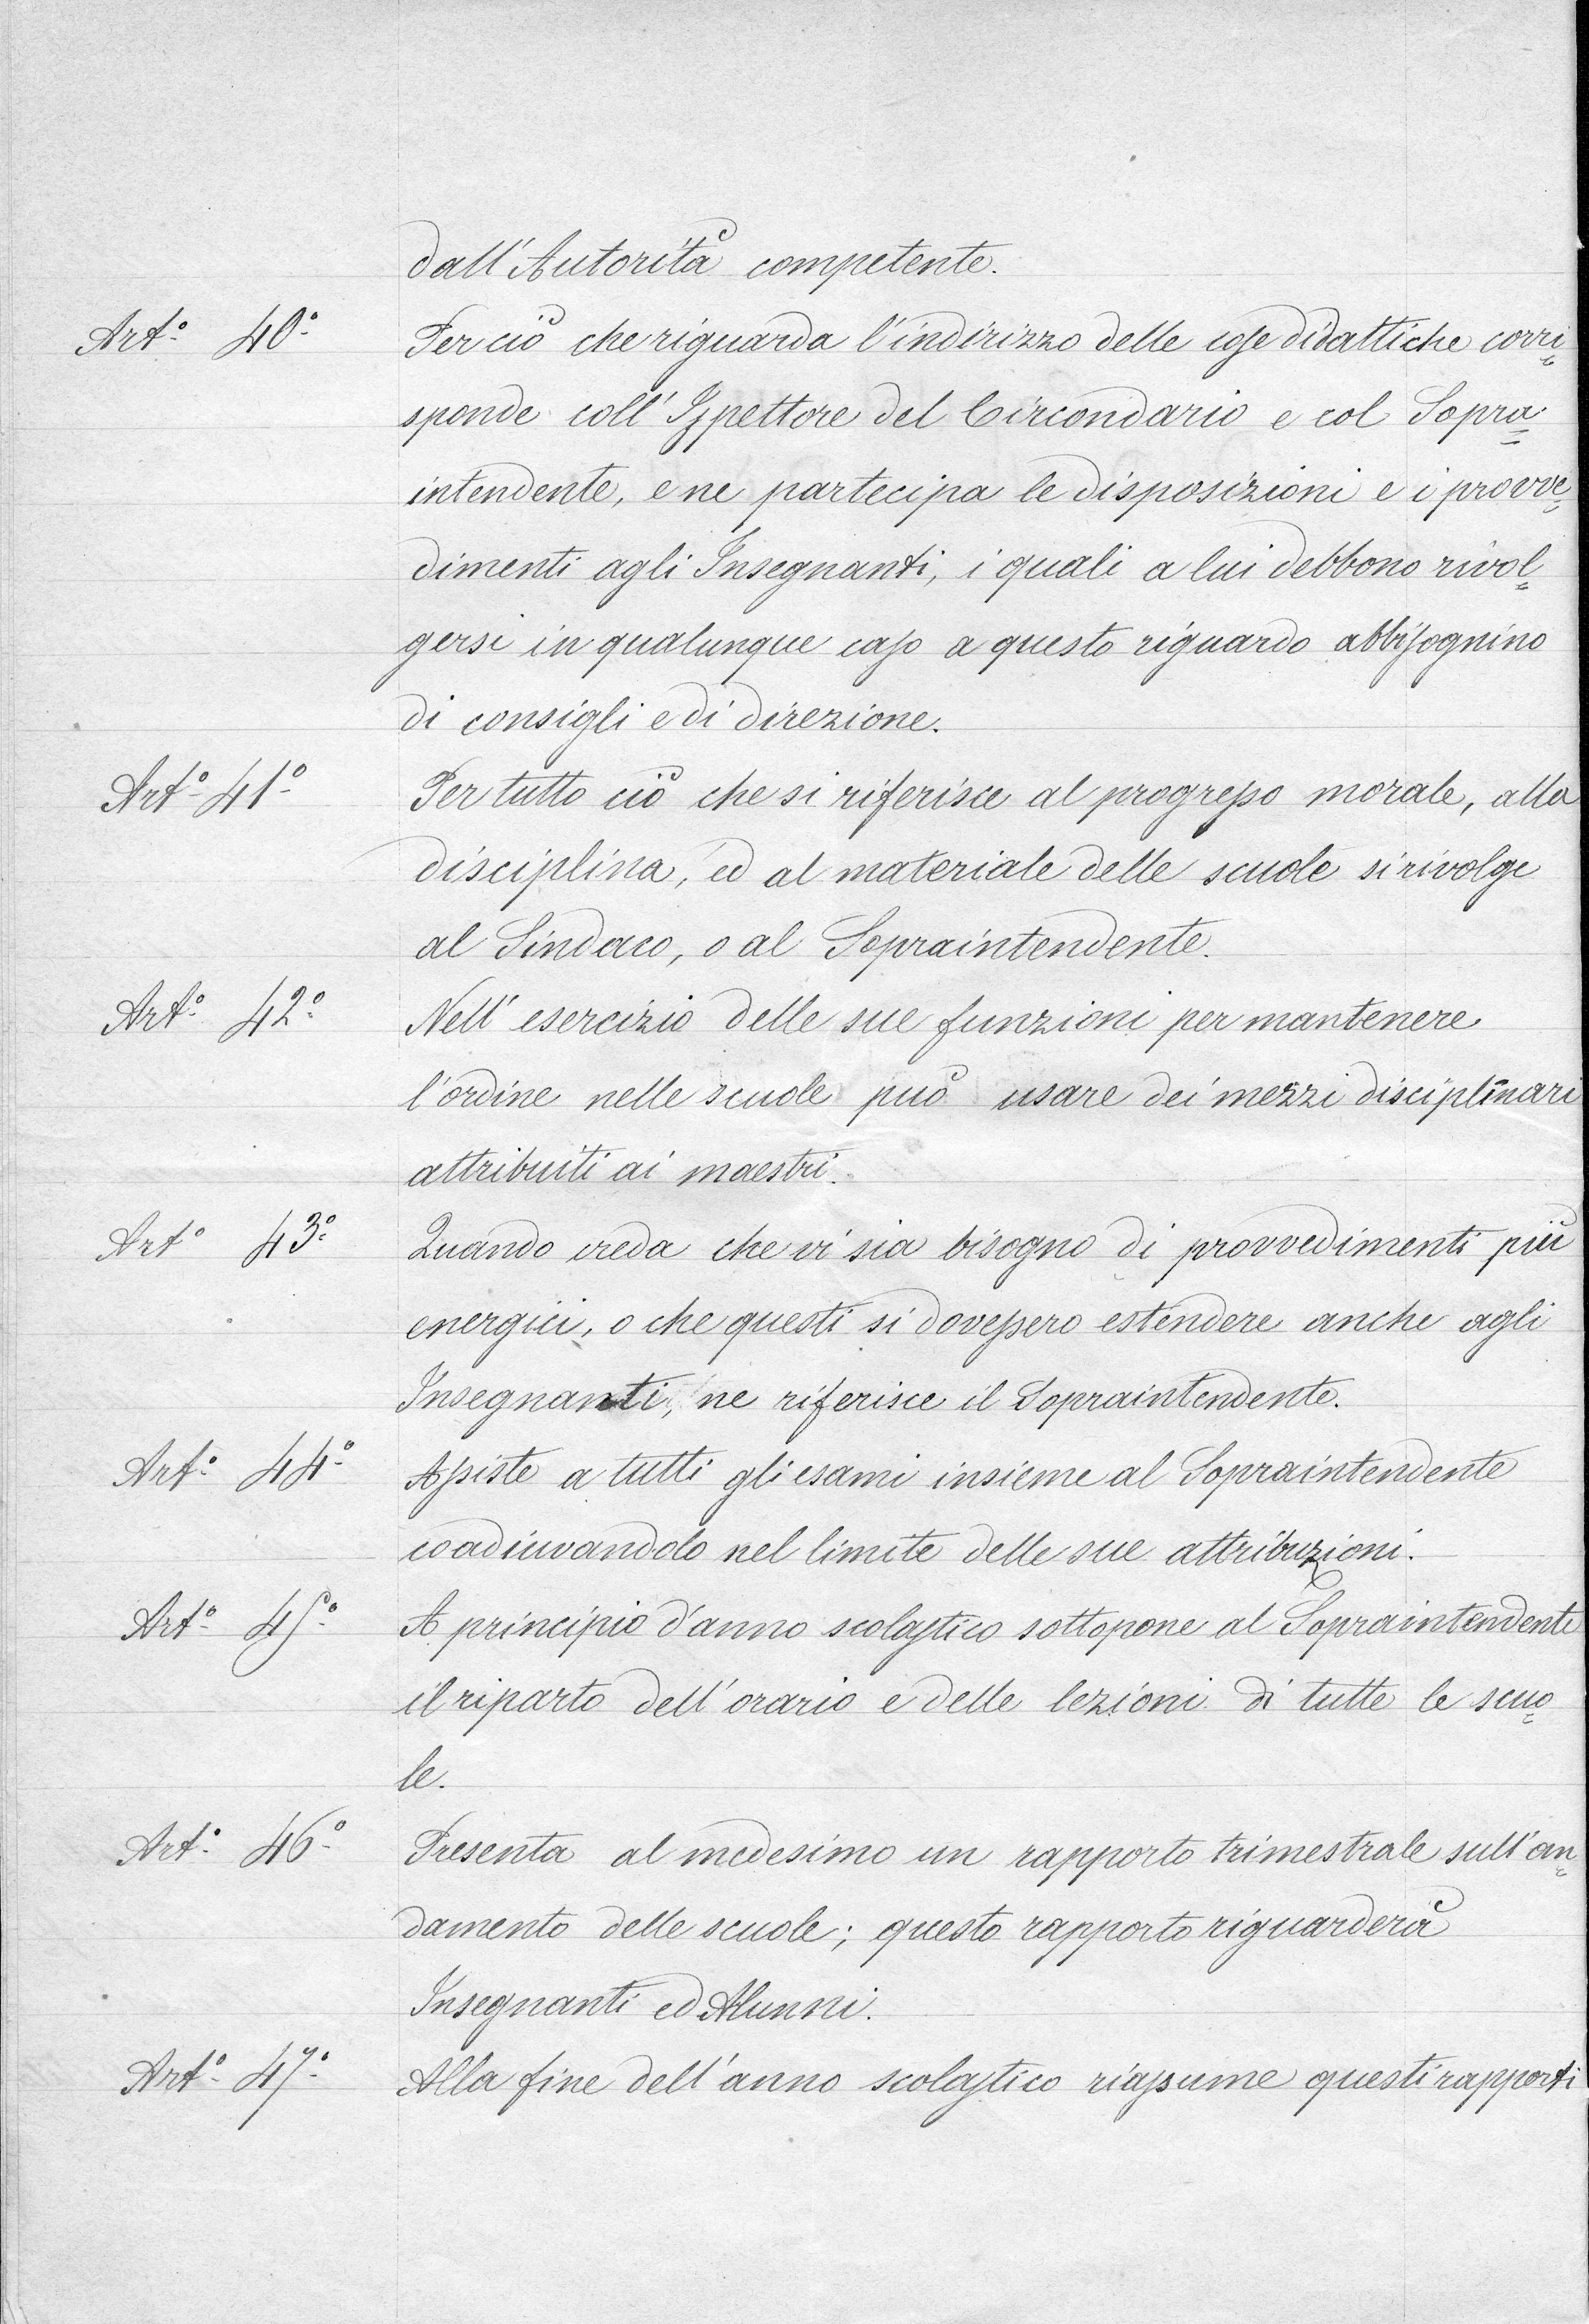 dall'Autorità competente.
Art.o 40.o Per ciò che riguarda l'indirizzo delle cose didattiche corri=
sponde coll'Ispettore del Circondario e col Sopra=
intendente, e ne partecipa le disposizioni e i provve=
dimenti agli Insegnanti, i quali a lui debbono rivol=
gersi in qualunque caso a questo riguardo abbisognino
di consigli e di direzione.
Art.o 41.o Per tutto ciò che si riferisce al progresso morale, alla
disciplina, ed al materiale delle scuole si rivolge
al Sindaco, o al Sopraintendente.
Art.o 42.o Nell'esercizio delle sue funzioni per mantenere
l'ordine nelle scuole può usare dei mezzi disciplinari
attribuiti ai maestri.
Art.o 43.o Quando creda che vi sia bisogno di provvedimenti più
energici, o che questi si dovessero estendere anche agli
Insegnanti, ne riferisce il Sopraintendente.
Art.o 44.o Assiste a tutti gli esami insieme al Sopraintendente
coadiuvandolo nel limite delle sue attribuzioni.
Art.o 45.o A principio d'anno scolastico sottopone al Sopraintendente
il riparto dell'orario e delle lezioni di tutte le scuo=
le.
Art.o 46.o Presenta al medesimo un rapporto trimestrale sull'an=
damento delle scuole; questo rapporto riguarderà
Insegnanti ed Alunni.
Art.o 47.o Alla fine dell'anno scolastico riassume questi rapporti